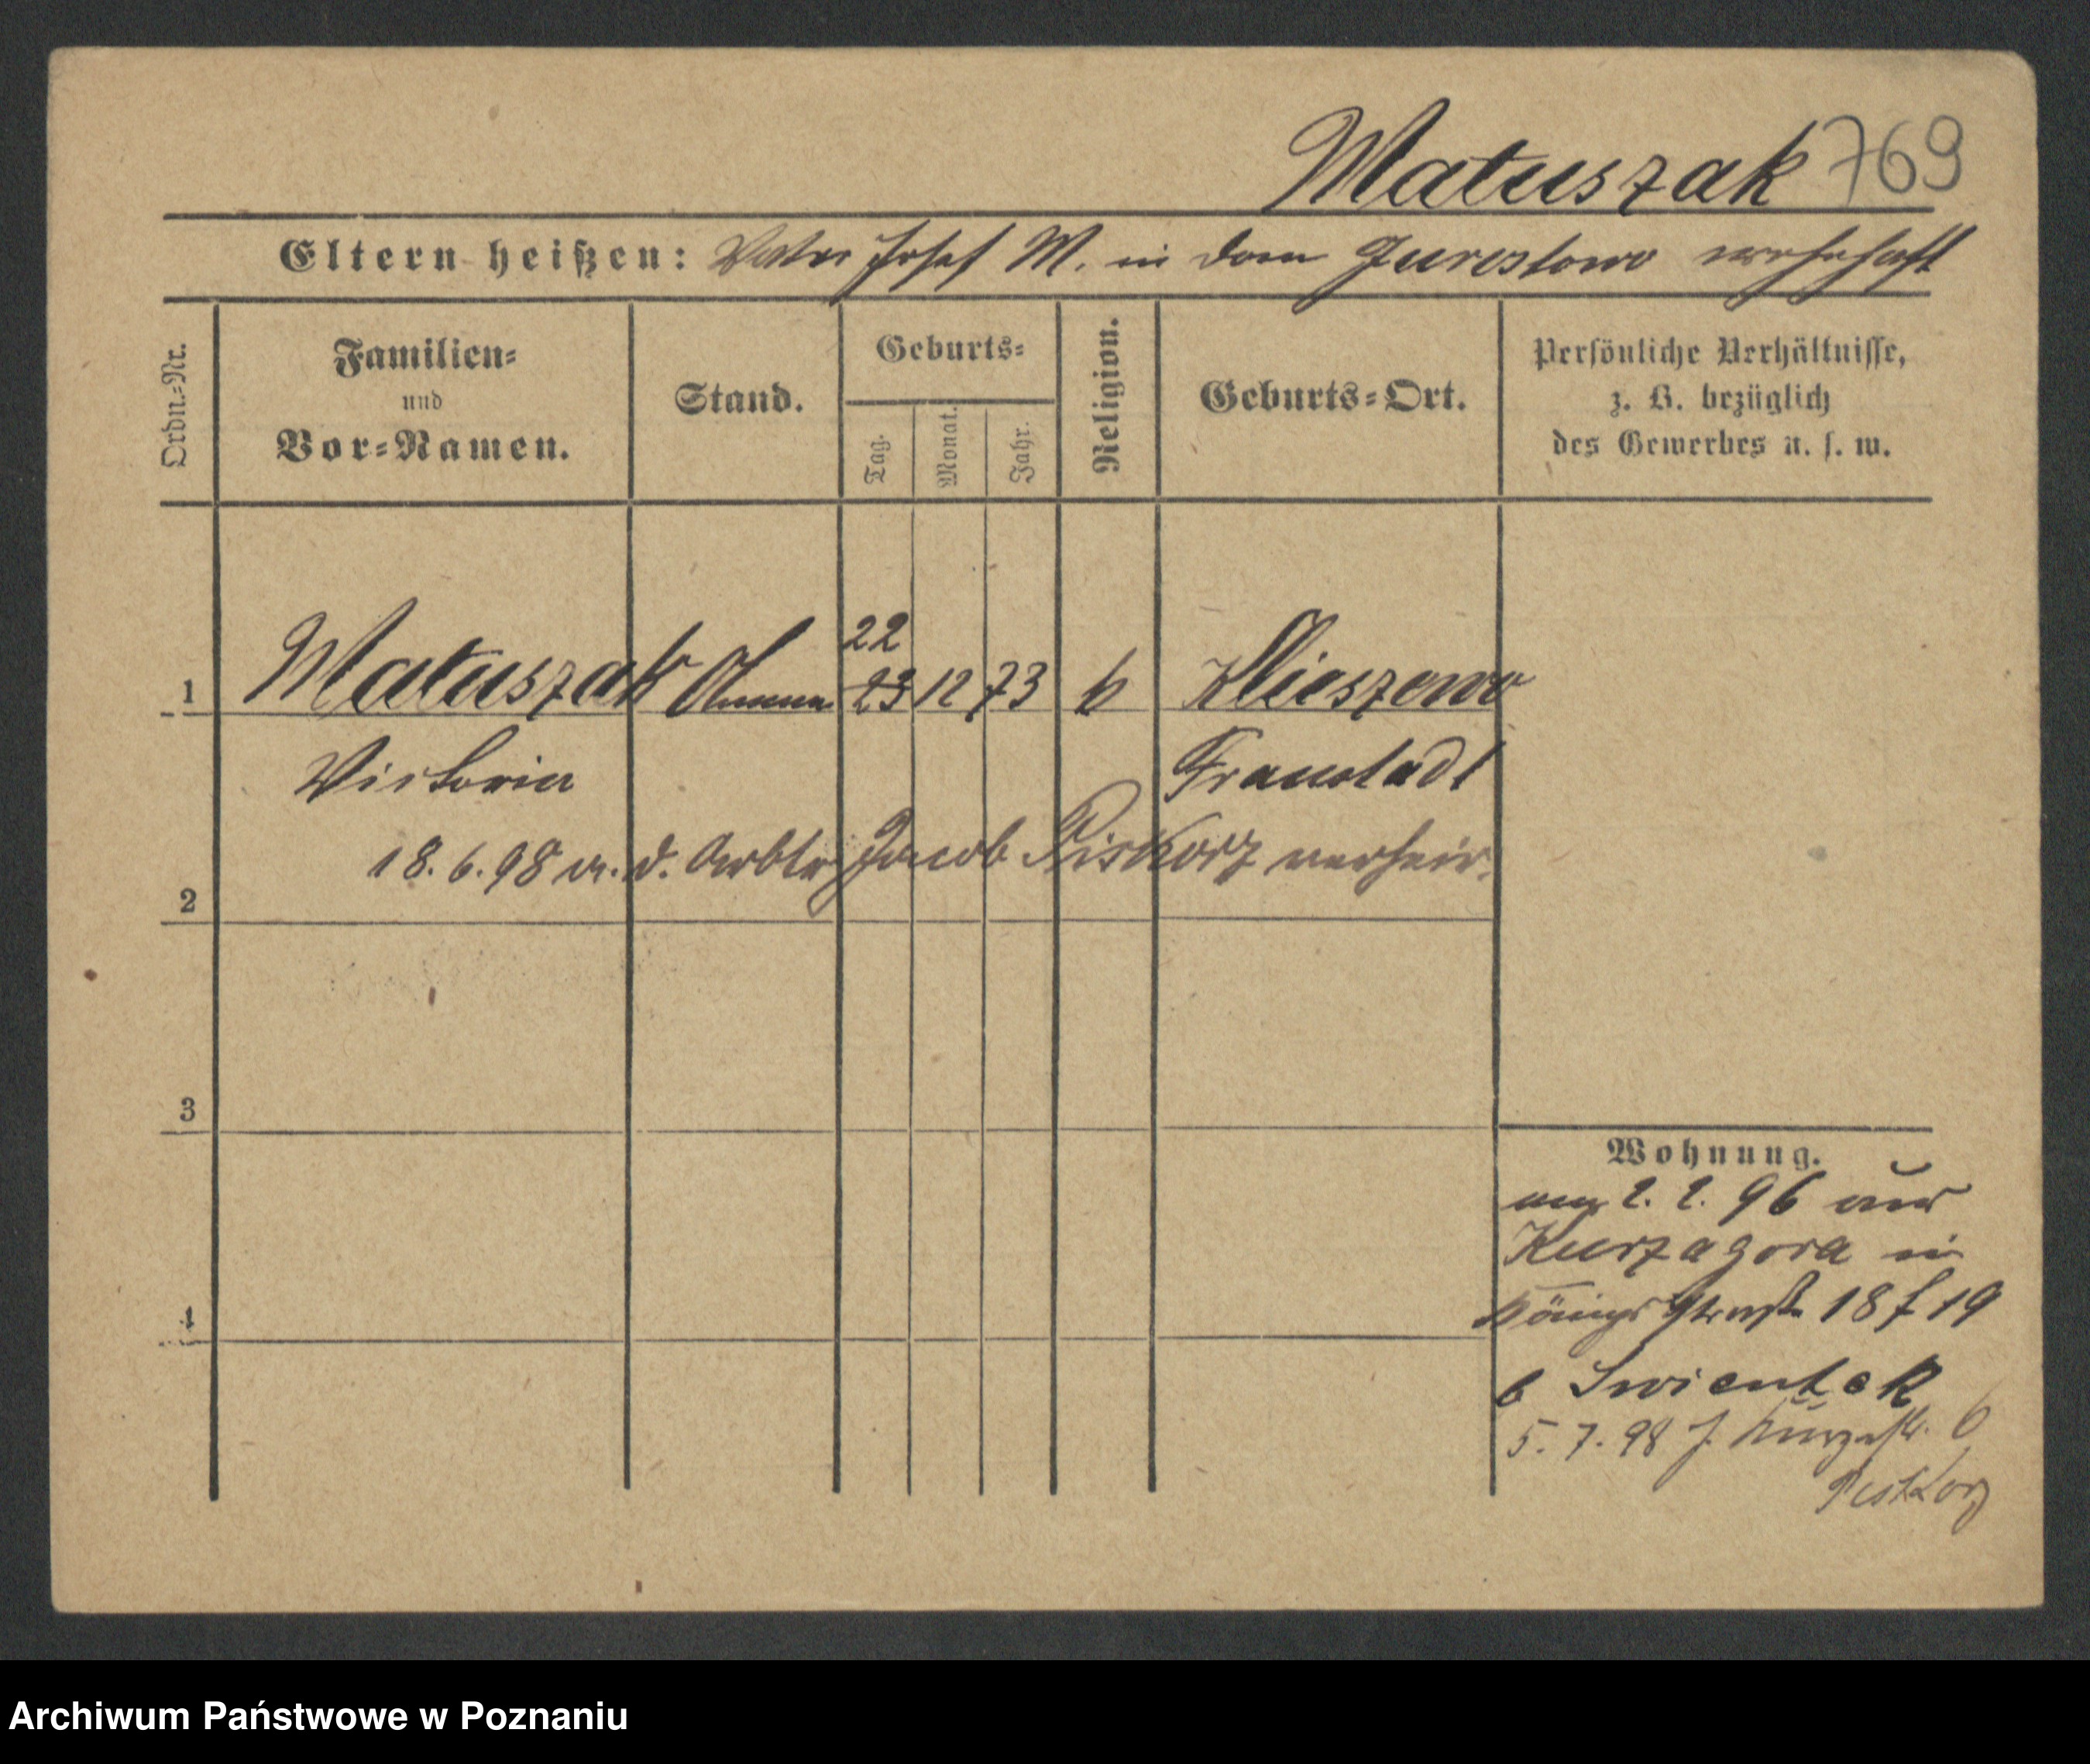 Matuszak 769
Eltern heißen: Vater Josef M. in Dom Jurostowo wohnhaft
Ordn.=Nr.
Familien=
und
Vor=Namen.
Stand.
Geburts=
Tag.
Monat.
Jahr.
Religion.
Geburts=Ort.
Persönliche Verhältnisse,
z. B. bezüglich
des Gewerbes u. s. w.
22
1 Matuszak 23 12 73 k Klieszewo
Victoria Fraustadt
18.6.98 m. d. Arbtr Jacob Piskorz verheir.
2
3
4
Wohnung.
2. 2. 96 aus
Kurzagora in
Königsstraße 18/19
b Swientek
5. 7. 98 b
Piskorz
Archiwum Państwowe w Poznaniu